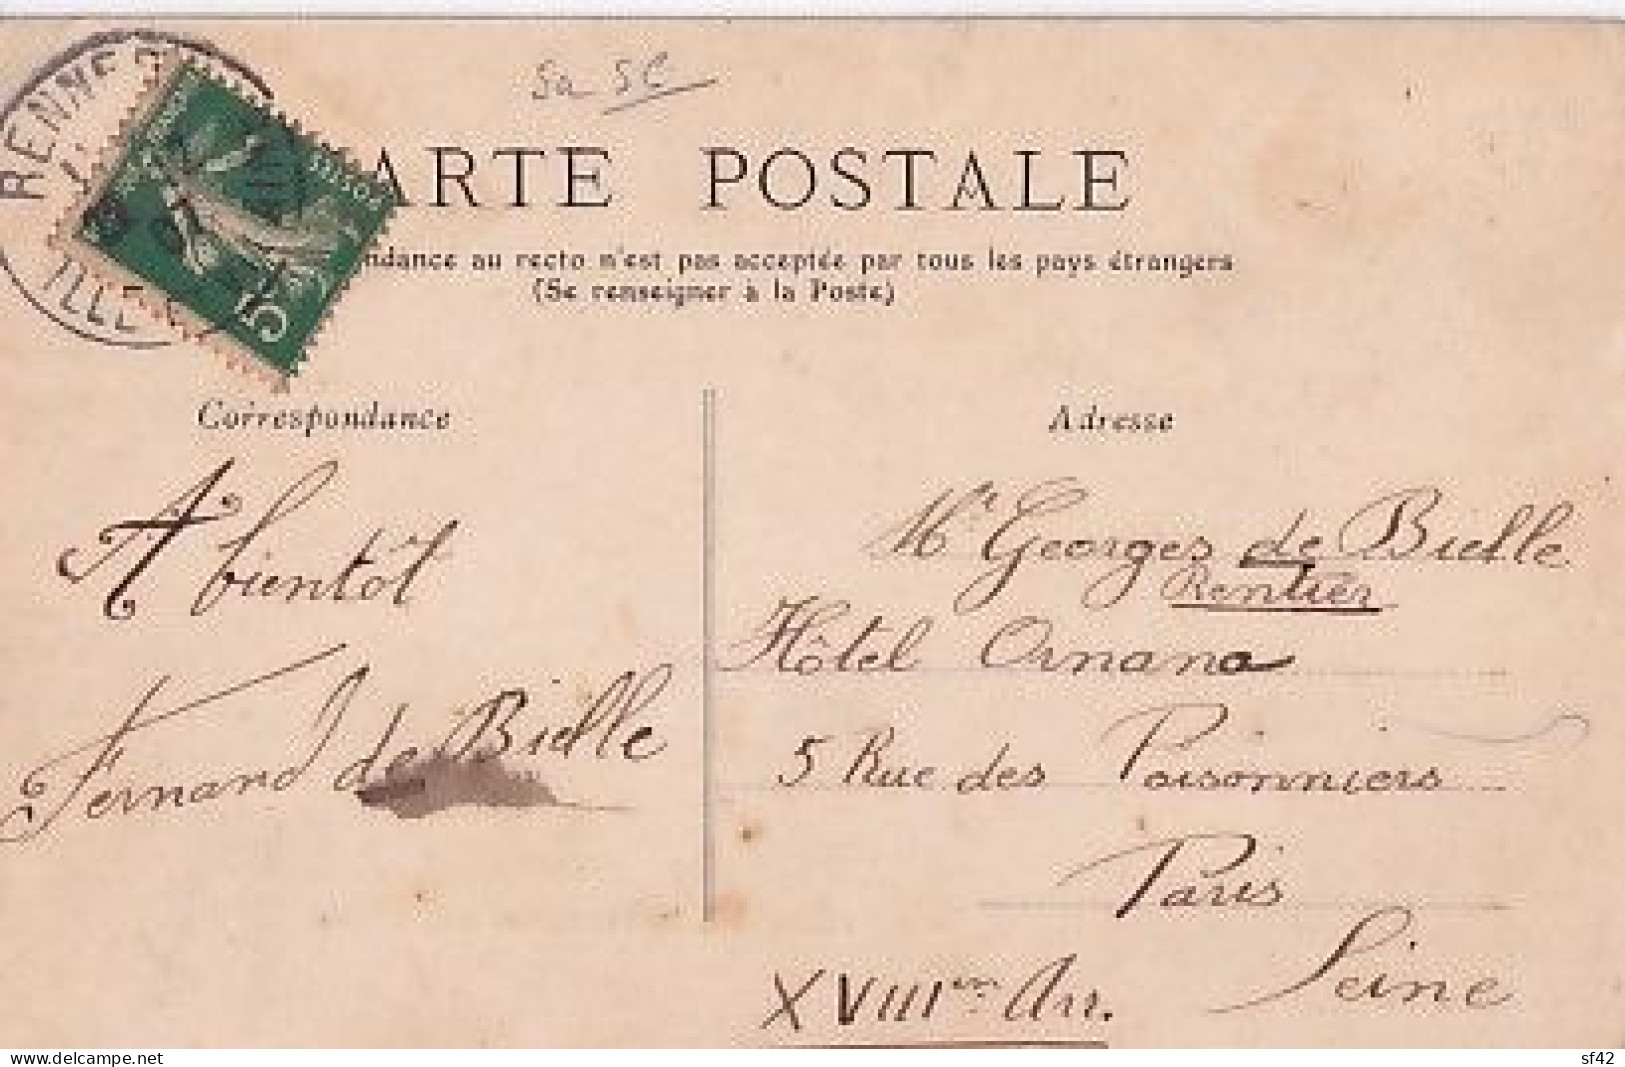 RENNES
ILLE
5
CARTE POSTALE
ndance au recto n'est pas acceptée par tous les pays étrangers
(Se renseigner à la Poste)
Correspondance
A bientôt
Fernand de Bielle
Adresse
Mr Georges de Bielle
Rentier
Hôtel Ornano
5 Rue des Poisonniers
Paris
Seine
XVIIIem Arr.
www.delcampe.net
sf42